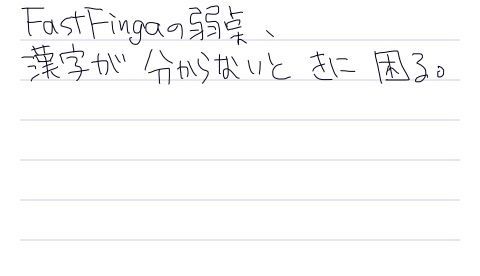 FastFingaの弱点、
漢字が分からないときに困る。